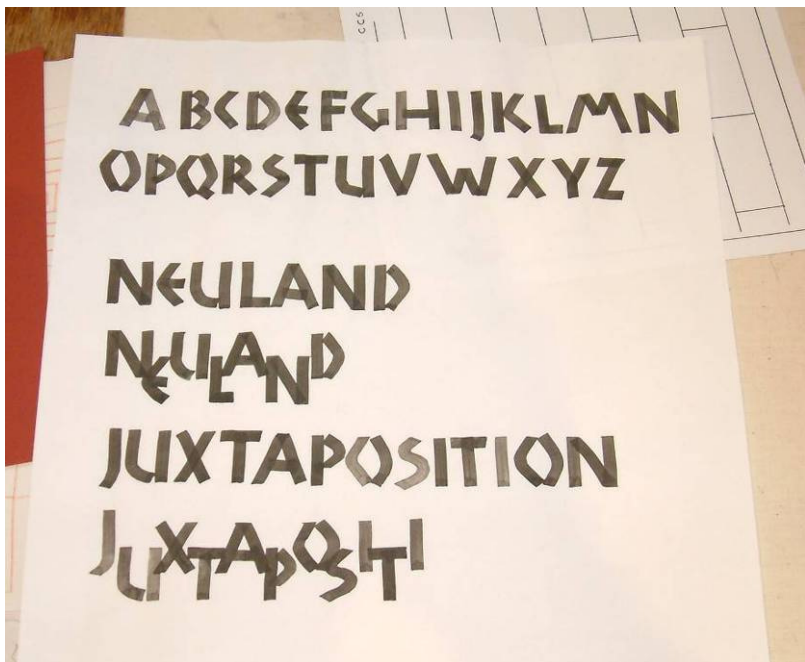 CCS
ABCDEFGHIJKLMN
OPQRSTUVWXYZ
NEULAND
NEULAND
JUXTAPOSITION
JUXTAPOSITI